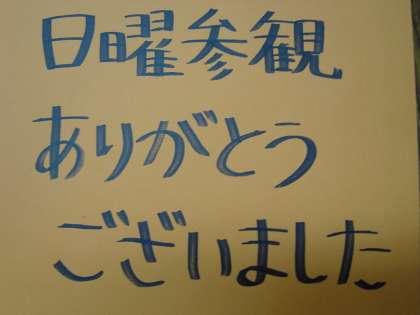 日曜参観
ありがとう
ございました